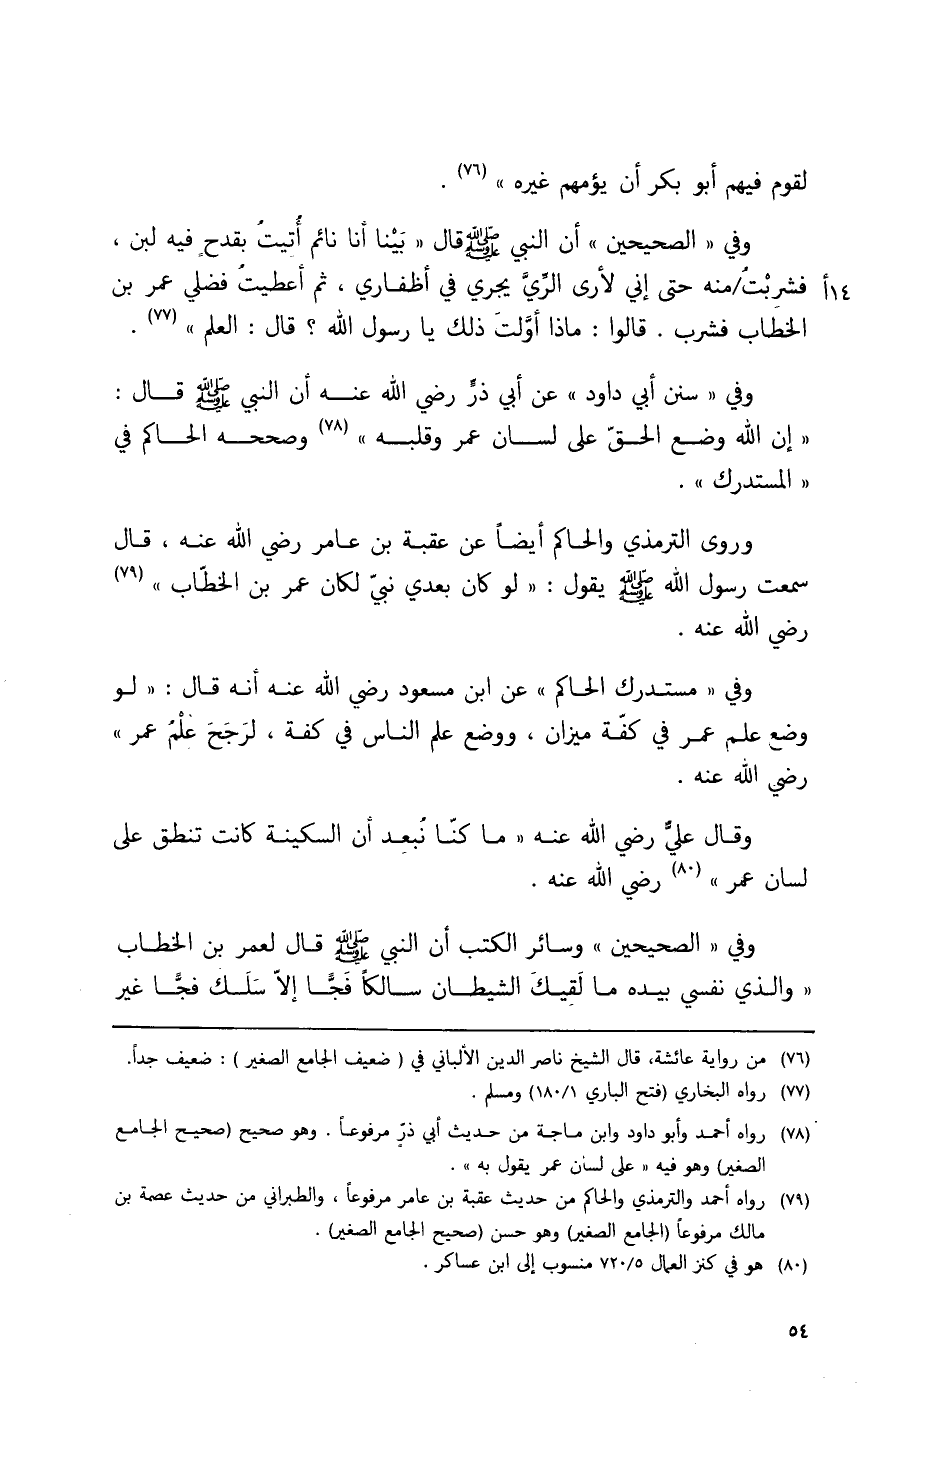 لقوم فيهم أبو بكر أن يؤمهم غيره » (٧٦) .
وفي « الصحيحين » أن النبي ﷺ قال « بَيْنا أنا نائم أُتيتُ بقدحٍ فيه لبن ،
١٤أ فشربْتُ/منه حتى إني لأرى الرِّيَّ يجري في أظفـاري ، ثم أعطيتُ فضلي عمر بن
الخطاب فشرب . قالوا : ماذا أوَّلتَ ذلك يا رسول الله ؟ قال : العلم » (٧٧) .
وفي « سنن أبي داود » عن أبي ذرٍّ رضي الله عنـــه أن النبي ﷺ قـــال :
« إن الله وضـع الحـقّ على لســان عمر وقلبــه » (٧٨) وصححــه الحــاكم في
« المستدرك » .
وروى الترمذي والحاكم أيضـاً عن عقبـة بن عـامر رضي الله عنـه ، قـال
سمعت رسول الله ﷺ يقول : « لو كان بعدي نبيّ لكان عمر بن الخطّاب » (٧٩)
رضي الله عنه .
وفي « مستـدرك الحـاكم » عن ابن مسعود رضي الله عنـه أنـه قـال : « لـو
وضع علـم عمـر في كفّـة ميزان ، ووضع علم النـاس في كفـة ، لرَجَحَ عِلْمُ عمر »
رضي الله عنه .
وقـال عليٌّ رضي الله عنـه « مـا كنّـا نُبعـد أن السكينـة كانت تنطق على
لسان عمر » (٨٠) رضي الله عنه .
وفي « الصحيحين » وسـائر الكتب أن النبي ﷺ قـال لعمر بن الخطـاب
« والـذي نفسي بيـده مـا لَقِيـكَ الشيطـان سـالكاً فَجًّـا إلاّ سَلَـك فجًّـا غير
(٧٦) من رواية عائشة، قال الشيخ ناصر الدين الألباني في ( ضعيف الجامع الصغير ) : ضعيف جداً.
(٧٧) رواه البخاري (فتح الباري ١٨٠/١) ومسلم .
(٧٨) رواه أحمـد وأبو داود وابن مـاجـة من حـديث أبي ذرّ مرفوعـاً . وهو صحيح (صحيـح الجـامـع
الصغير) وهو فيه « على لسان عمر يقول به » .
(٧٩) رواه أحمد والترمذي والحاكم من حديث عقبة بن عامر مرفوعاً ، والطبراني من حديث عصمة بن
مالك مرفوعاً (الجامع الصغير) وهو حسن (صحيح الجامع الصغير) .
(٨٠) هو في كنز العمال ٧٢٠/٥ منسوب إلى ابن عساكر .
٥٤